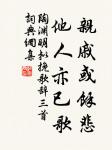 親戚或餘悲
他人亦已歌
陶淵明擬挽歌辭三首
詞典網集